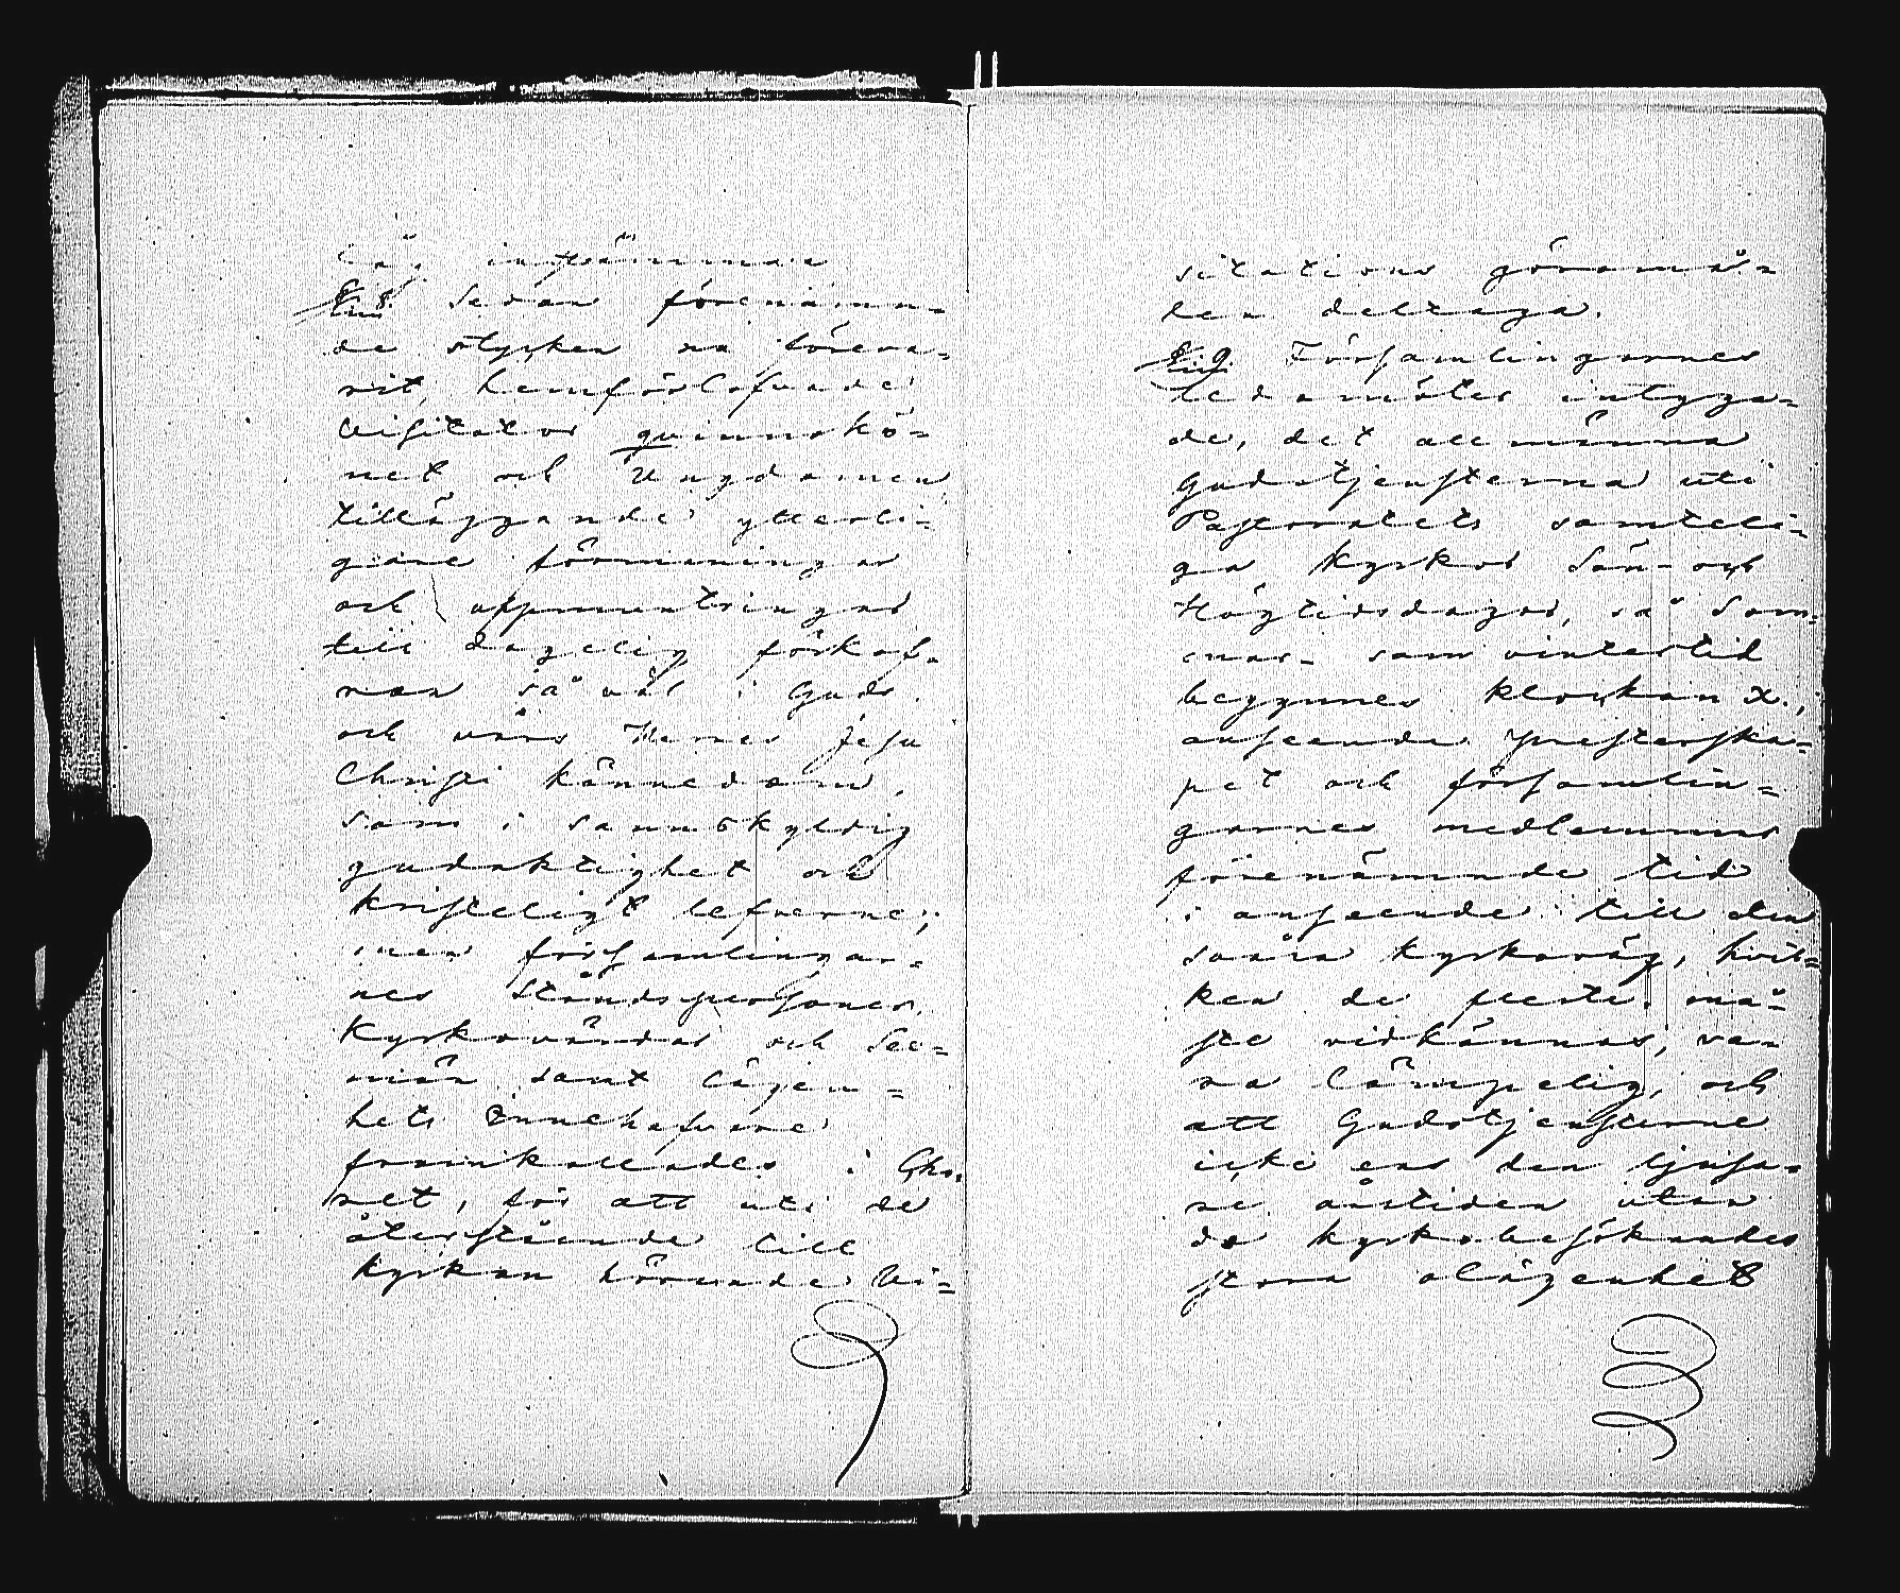 sig infrämman
§. 8. Sedan förenämn-
de stycken sa föreva-
rit, hemförlofvade
Visitator quinnskö-
net och Ungdomen
tilläggande ytterli-
gare förmaningar
och uppmuntringar
till dagelig förkof-
ran så väl i Guds
och vårs Herres Jesu
Christi kännedom,
som i sannskyldig
gudaktighet och
kristeligt lefverne;
men församlingar-
nes Ståndspersoner,
Kyrkovärdar och Sex-
män samt lägen-
hets Innehafvare
framkallades i Cho-
ret, för att uti de
återstående till
kyrkan hörande Vi-
sitations göromå-
len deltaga.
§. 9. Församlingarnes
ledamöter intyga-
de, det allmänna
Gudstjensterna uti
Pastoratets samteli-
ga kyrkor Sön- och
Högtidsdagar, så Som-
mar- som vintertid
begynnes klockan X.,
anseende Presterska-
pet och församlin-
garnes medlemmar
förenämnde tid
i anseende till den
svåra kyrkoväg, hvil-
ken de fleste må-
ste vidkännas, va-
ra lämpelig, och
att Gudstjensterne
icke ens den ljusa-
re årstiden utan
de kyrkobesökandes
stora olägenhet